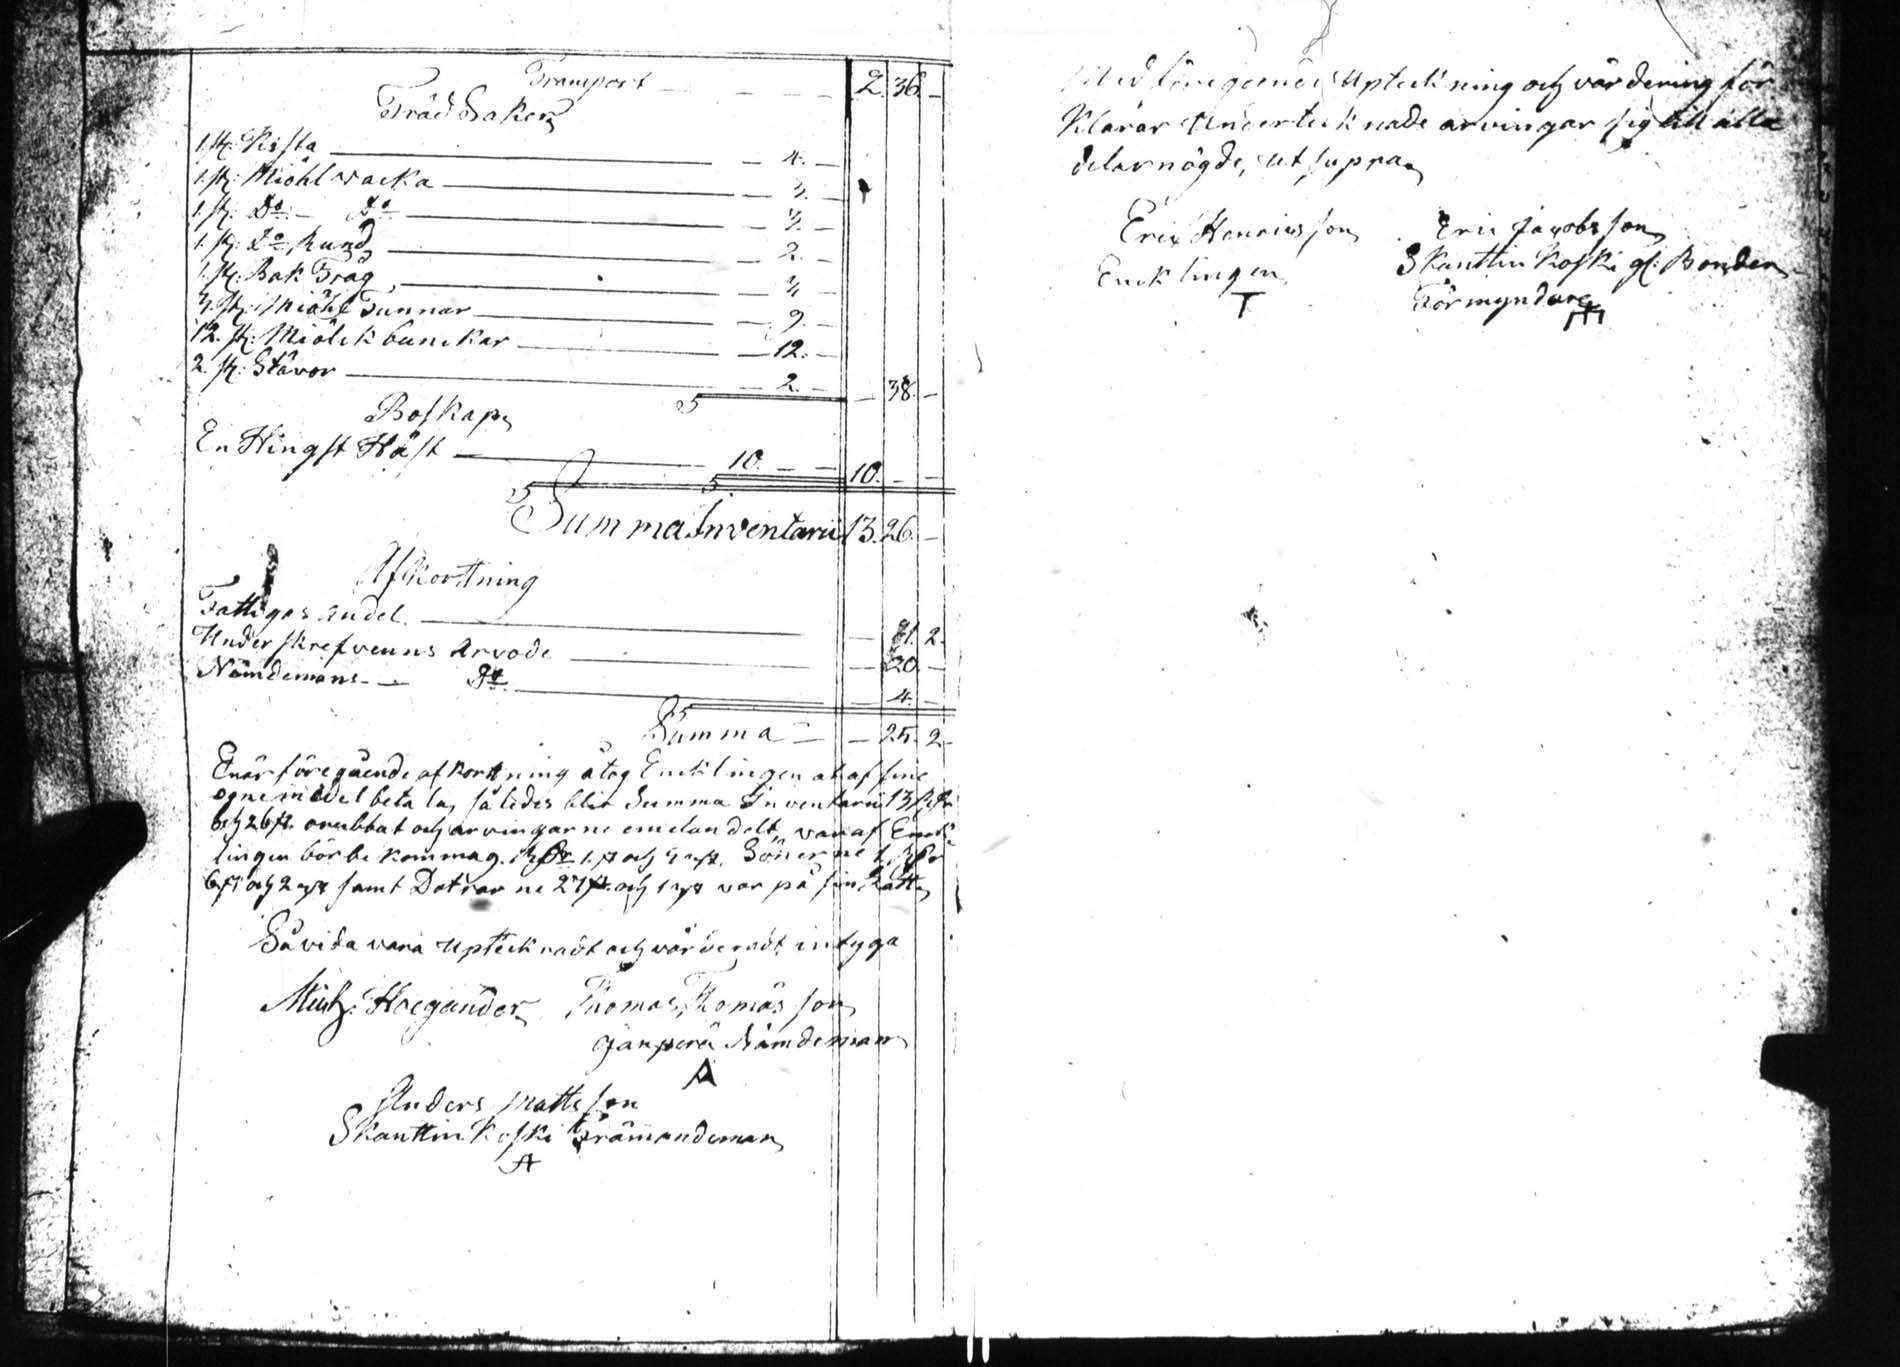 Transport — — — — 2. 36. —
Träd Saker
1. st: Kista — 4. —
1. st: Miöhl vacka — 3. —
1. st: Do — Do — 3. —
1. st: Do Rund — 2. —
1. st: Bak Tråg — 3 —
3. st: Miöhl Tunnor — 9. —
12. st: Miölck bunckar — 12. —
2. st: Stävor — 2. — — 38. —
Boskap
En Hingst Häst — 10. — — 10. — —
Summa Inventarii 13. 26. —
Afkortning
Fattigas andel. — 1. 2.
Underskrefvenns Arvode — 20. —
Nämdemans — Do — 4. —
Summa — — 25. 2.
Enär föregående afkortning åtog Encklingen at af sine
egne medel betala, således blir Summa Inventarii 13
och 26 st. orubbat och arvingarne emelan delt, varaf Enck
lingen bör bekomma 1. och Sönerne
och 2 samt Dötrarne 27 och 1 var på sin Lått
Såvida vara upteck nadt och värderadt, intyga
Mich: Hoegander Thomas Thomas son
Nämdeman
A
Anders Matts son
Skanttin Koski Främandeman
A
Med föregående Upteckning och värdering för
Klarar Undertecknade arvingar sig till alla
delar nögde, ut supra
Eric Henrics son Eric Jacobs son
Encklingen Skanttin Koski gl: Bonden
T Förmyndare